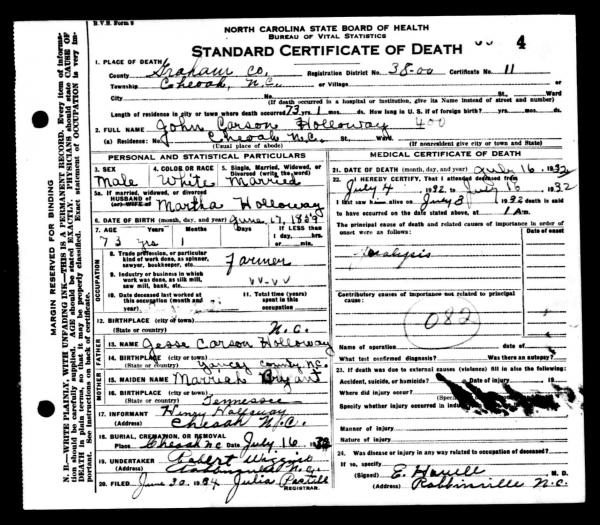 B.V.S. Form 8
NORTH CAROLINA STATE BOARD OF HEALTH
BUREAU OF VITAL STATISTICS
STANDARD CERTIFICATE OF DEATH 4
1. PLACE OF DEATH
County Graham Co. Registration District No. 38-00 Certificate No. 11
Township Cheoah, N.C. or Village
City No. St., Ward
(If death occurred in a hospital or institution, give its Name instead of street and number)
Length of residence in city or town where death occurred 73 yrs. 1 mos. ds. How long in U. S. if of foreign birth? yrs. mos. ds.
2. FULL NAME John Carson Holloway 400
(a) Residence: No. Cheoah N.C. St., Ward.
(Usual place of abode) (If nonresident give city or town and State)
PERSONAL AND STATISTICAL PARTICULARS
3. SEX 4. COLOR OR RACE 5. Single, Married, Widowed, or Divorced (write the word)
Male White Married
5a. If married, widowed, or divorced
HUSBAND of
(or) WIFE of Martha Holloway
6. DATE OF BIRTH (month, day, and year) June 17, 1859
7. AGE Years Months Days If LESS than 1 day, hrs. or min.
73 yrs 1
8. Trade, profession, or particular kind of work done, as spinner, sawyer, bookkeeper, etc. Farmer
9. Industry or business in which work was done, as silk mill, saw mill, bank, etc. VV-VV
10. Date deceased last worked at this occupation (month and year)
11. Total time (years) spent in this occupation
OCCUPATION
12. BIRTHPLACE (city or town)
(State or country) N.C.
FATHER
13. NAME Jesse Carson Holloway
14. BIRTHPLACE (city or town)
(State or country) Yancey County N.C.
MOTHER
15. MAIDEN NAME Marriah Bryant
16. BIRTHPLACE (city or town)
(State or country) Tennessee
17. INFORMANT Henry Holloway
Cheoah N.C.
18. BURIAL, CREMATION, OR REMOVAL
Place Cheoah N.C. Date July 16, 1932
19. UNDERTAKER Robert Wiggins
N.C.
20. FILED June 30, 1934 Julia
REGISTRAR.
MEDICAL CERTIFICATE OF DEATH
21. DATE OF DEATH (month, day, and year) July 16, 1932
22. I HEREBY CERTIFY, That I attended deceased from
July 4, 1932, to July 16, 1932
I last saw h alive on July 8, 1932 death is said
to have occurred on the date stated above, at 1 A m.
The principal cause of death and related causes of importance in order of onset were as follows:
Date of onset
Paralysis
Contributory causes of importance not related to principal cause:
082
Name of operation date of
What test confirmed diagnosis? Was there an autopsy?
23. If death was due to external causes (violence) fill in also the following:
Accident, suicide, or homicide? Date of injury 19
Where did injury occur?
Specify whether injury occurred in
Manner of injury
Nature of injury
24. Was disease or injury in any way related to occupation of deceased?
If so, specify
(Signed) M. D.
(Address) Robbinsville N.C.
MARGIN RESERVED FOR BINDING
N. B.—WRITE PLAINLY, WITH UNFADING INK—THIS IS A PERMANENT RECORD. Every item of information should be carefully supplied. AGE should be stated EXACTLY. PHYSICIANS should state CAUSE OF DEATH in plain terms, so that it may be properly classified. Exact statement of OCCUPATION is very important. See instructions on back of certificate.